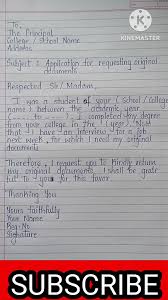 To,
The Principal
College / School Name
Address
KINEMASTER
Subject : Application for requesting original documents
Respected Sir/Madam,
I was a student of your (school/college name) between the academic year
(---- to ----). I completed my degree
from your college in the (year). Now
that I have an interview for a job
next week, for which I need my original
documents
Therefore, I request you to kindly return
my original documents. I shall be grate
full to you for this favor.
Thanking You
Yours faithfully
Your Name
Reg. No
Signature
SUBSCRIBE